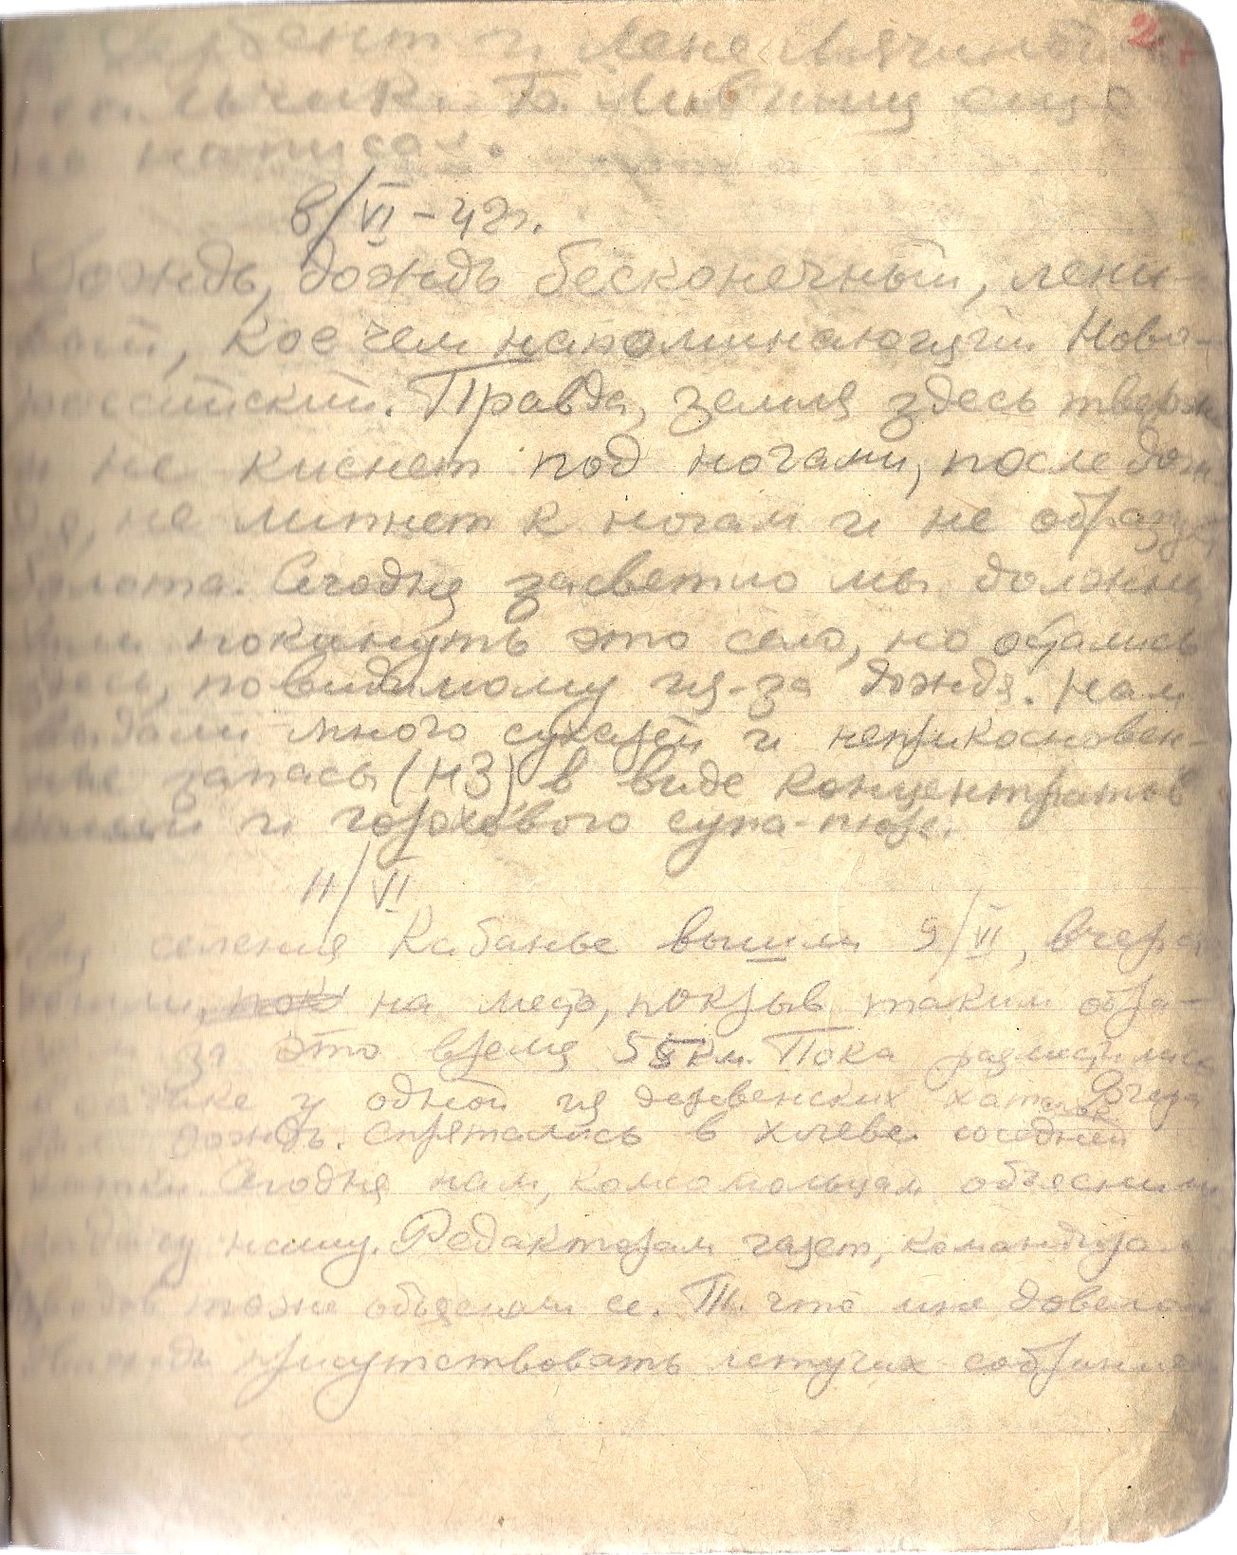 2
Дербент и Лене Лячиной
Нальчик. Б. Лившицу еще
не написал.
8/VI – 42 г.
Дождь, дождь бесконечный, лени-
вый, кое чем напоминающий Ново-
российский. Правда, земля здесь тверже
и не киснет под ногами, после дож-
дя, не липнет к ногам и не образует
болота. Сегодня засветло мы должны
были покинуть это село, но остались
здесь, повидимому из-за дождя. Нам
выдали много сухарей и неприкосновен-
ные запасы (НЗ) в виде концентратов
каши и горохового супа-пюре.
11/VI
Из селения Кабанье вышли 9/VI, вчера
на место, покрыв таким обра-
зом за это время 55 км. Пока разместились
в садике у одной из деревенских хат. Вчера
был дождь. Спрятались в хлеве соседней
хатки. Сегодня нам, комсомольцам объяснили
задачу нашу. Редакторам газет, командирам
взводов тоже объясняли ее. Т.ч. что мне довелось
трижды присутствовать летучих собраниях